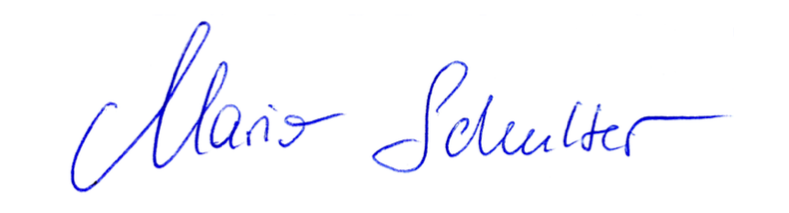 Mario Schulter